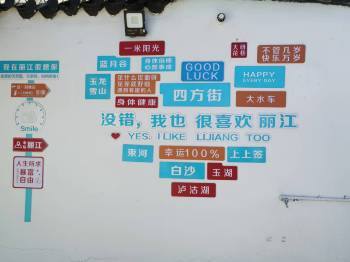 一米阳光
蓝月谷
GOOD
LUCK
大研
花巷
不管几岁
快乐万岁
HAPPY
EVERY DAY
玉龙
雪山
四方街
大水车
身体健康
没错，我也 很喜欢 丽江
YES. I LIKE LIJIANG TOO
束河
幸运100%
上上签
白沙
玉湖
泸沽湖
Smile
丽江
人生所求
暴富
自由